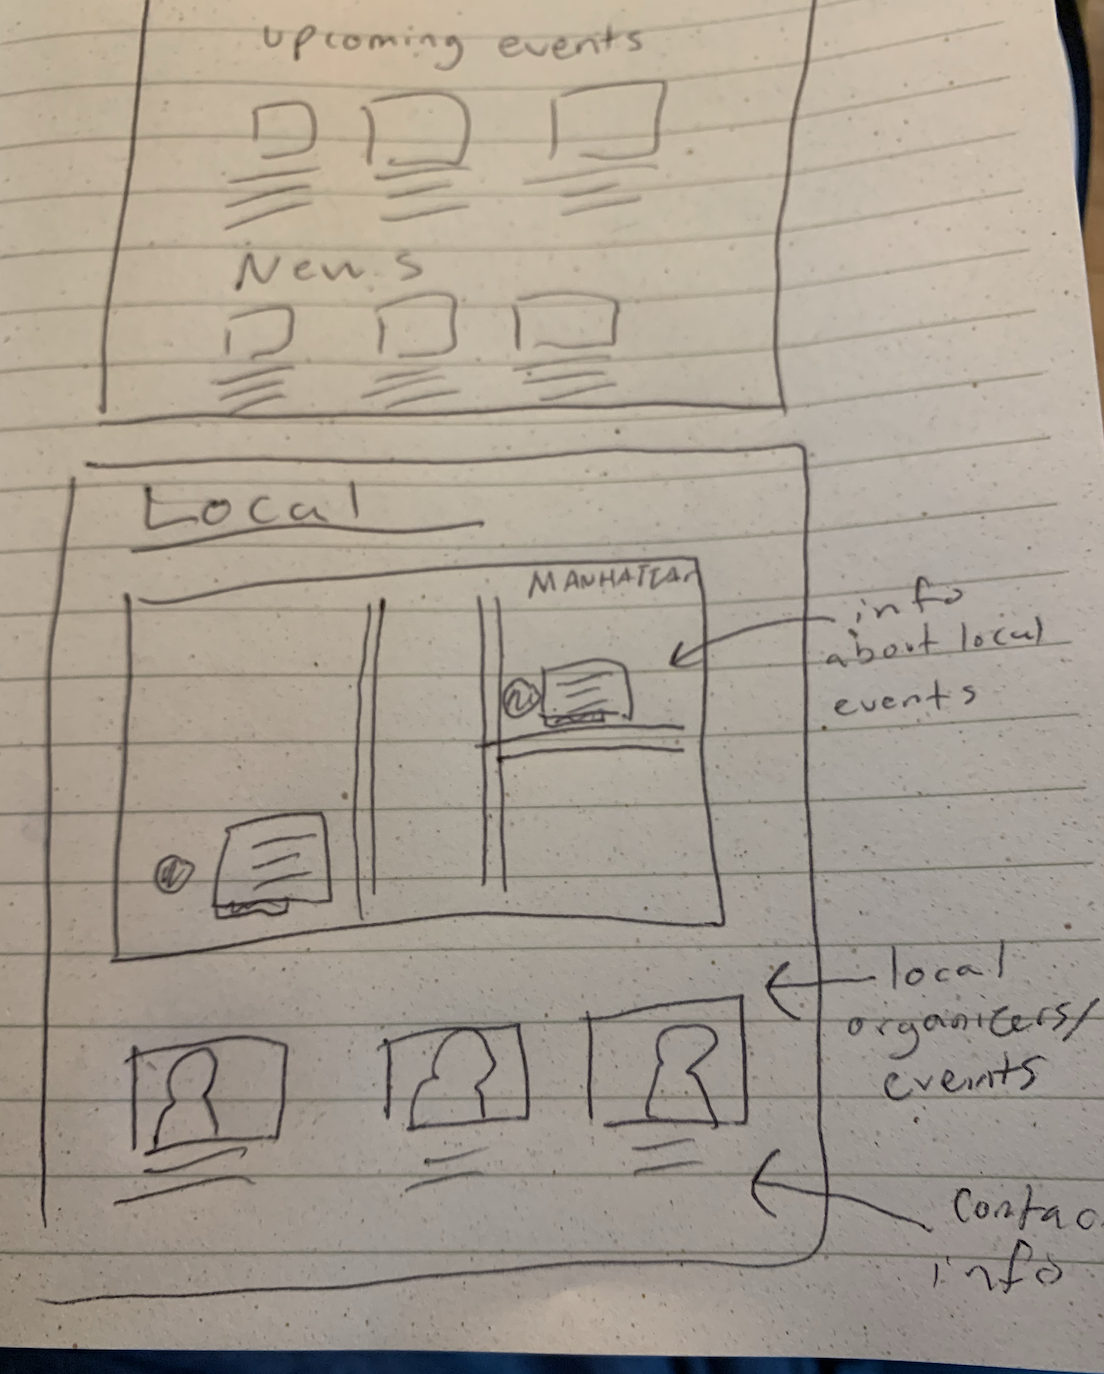 upcoming events
News
Local
MANHATTAN
info
about local
events
local
organizers/
events
contac
info